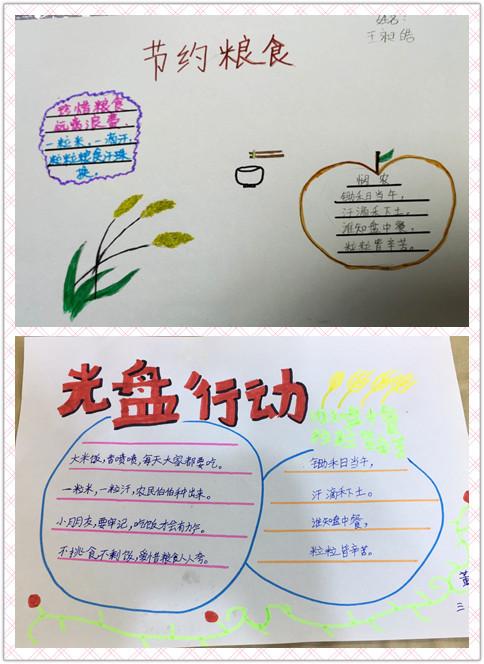 姓名：
王昶皓
节约粮食
珍惜粮食
远离浪费。
一粒米，一滴汗，
粒粒粮食汗珠
换。
悯农
锄禾日当午，
汗滴禾下土。
谁知盘中餐，
粒粒皆辛苦。
光盘行动
大米饭，香喷喷，每天大家都要吃。
一粒米，一粒汗，农民伯伯种出来。
小朋友，要牢记，吃饭才会有力气。
不挑食不剩饭，爱惜粮食人人夸。
锄禾日当午，
汗滴禾下土。
谁知盘中餐，
粒粒皆辛苦。
三